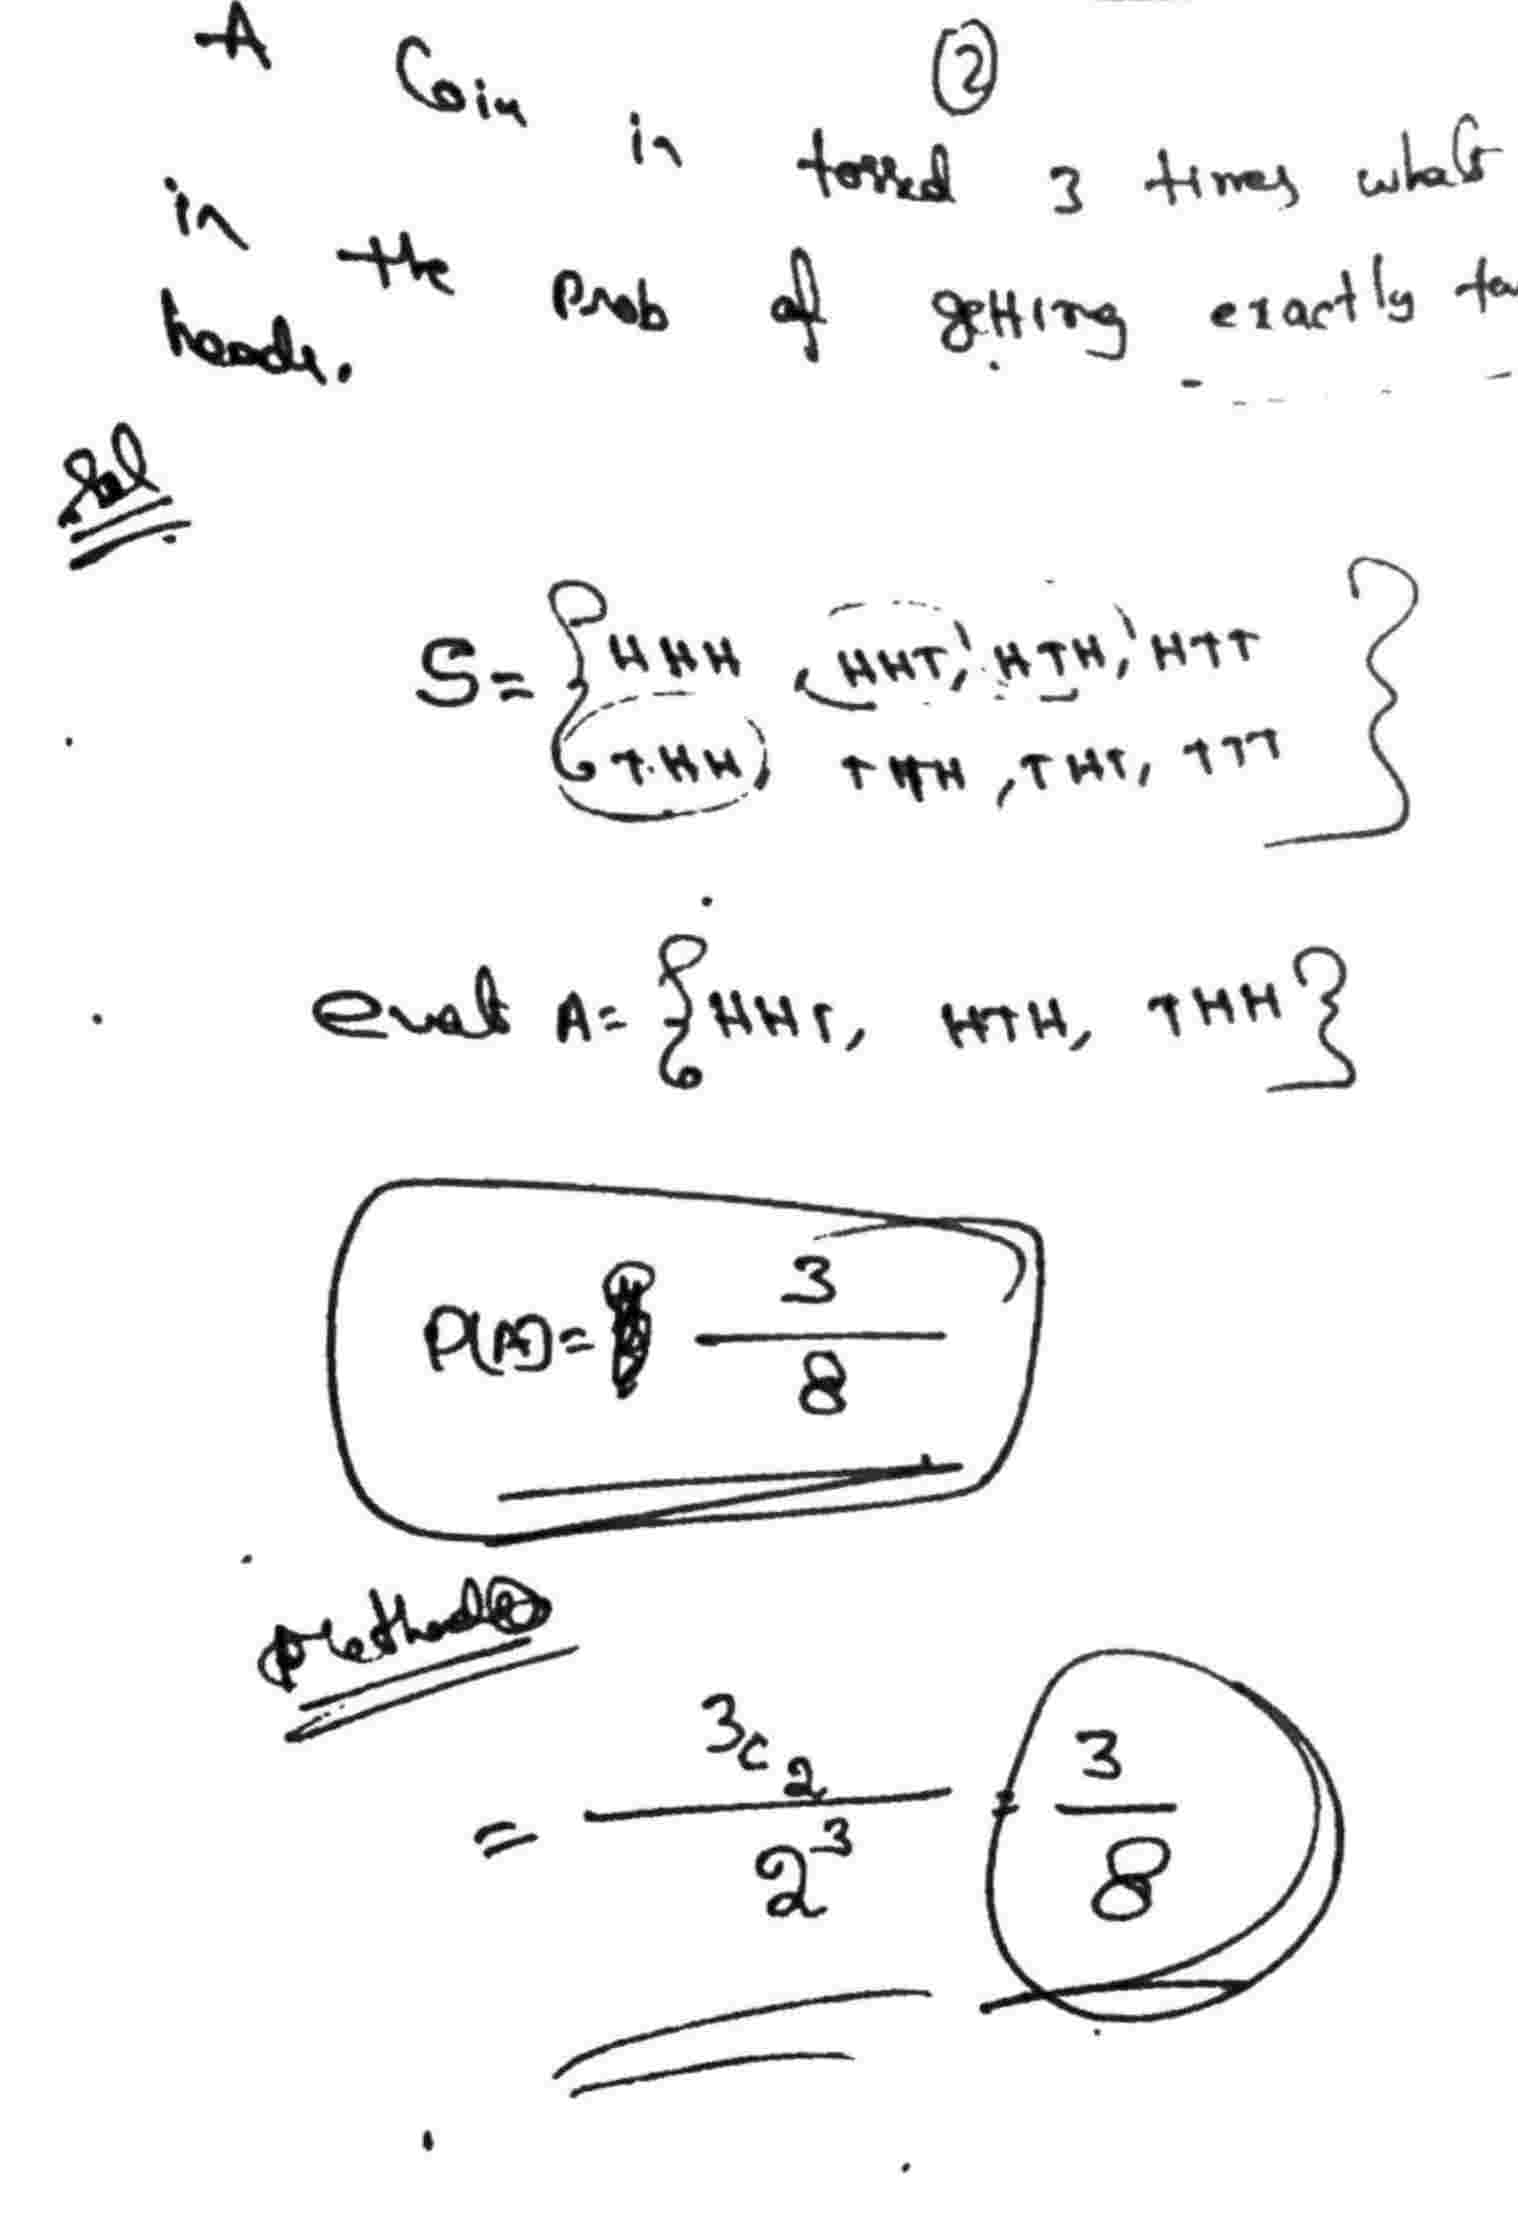 ②
A Coin is tossed 3 times what
is the Prob of getting exactly
heads.
Sol
S = { HHH, HHT, HTH, HTT
THH, THT, TTT }
event A = { HHT, HTH, THH }
P(A) = 3/8
Method ②
= 3c2 / 2^3 = 3/8